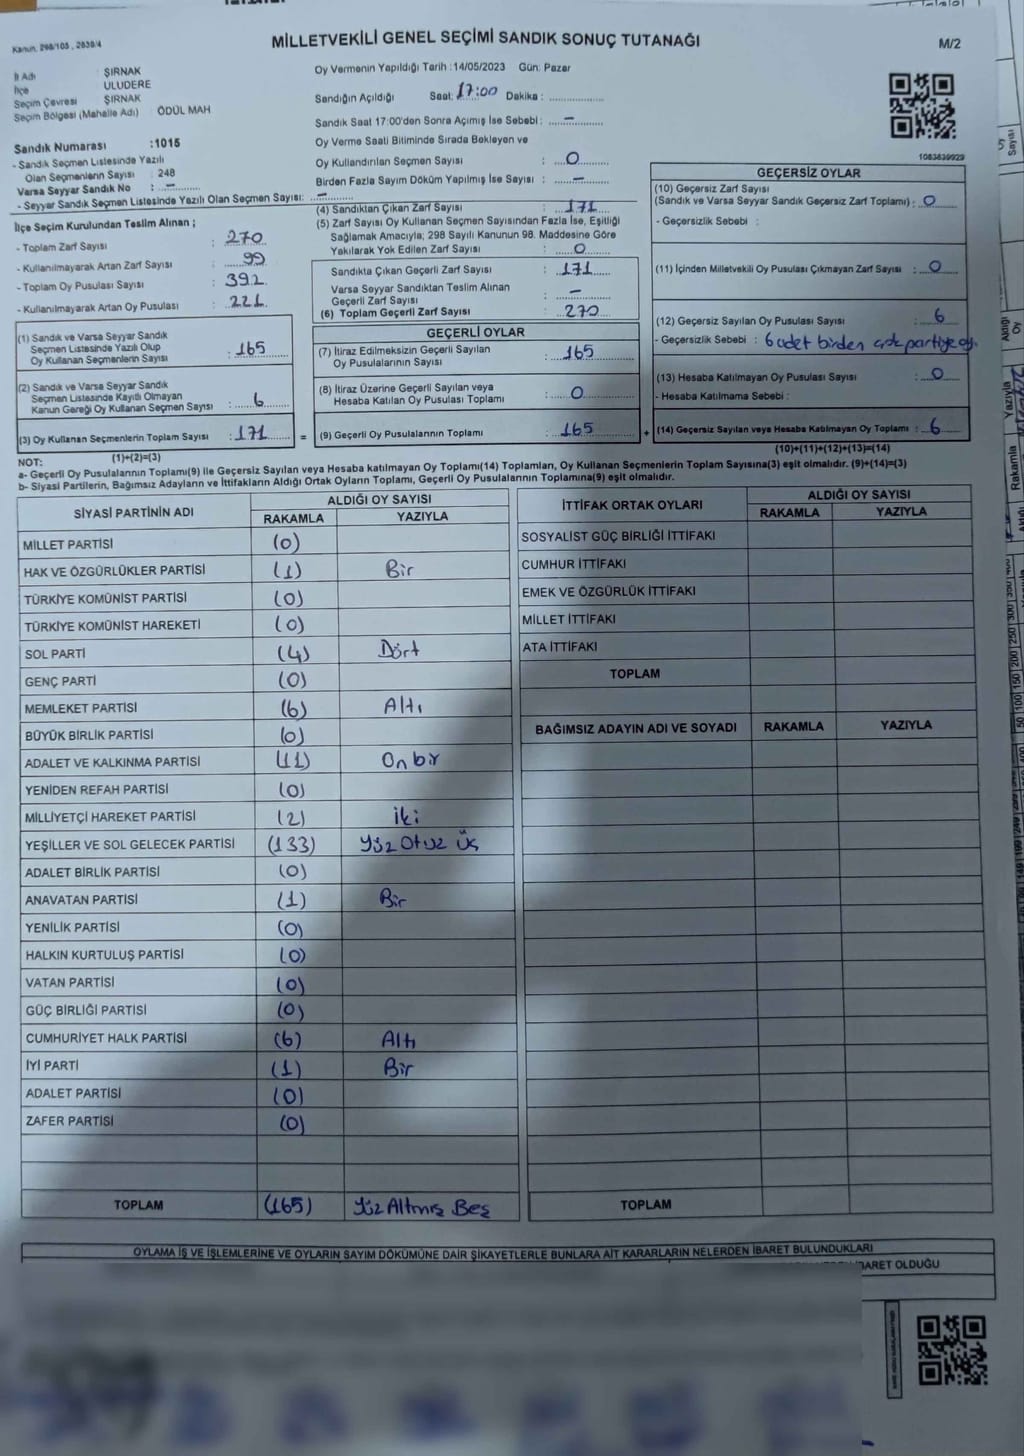 Kanun: 298/105 , 2839/4
MİLLETVEKİLİ GENEL SEÇİMİ SANDIK SONUÇ TUTANAĞI
M/2
İl Adı : ŞIRNAK
İlçe : ULUDERE
Seçim Çevresi : ŞIRNAK
Seçim Bölgesi (Mahalle Adı) : ÖDÜL MAH
Oy Vermenin Yapıldığı Tarih :14/05/2023 Gün: Pazar
Sandığın Açıldığı Saat: 17:00 Dakika : ..............
Sandık Saat 17:00'den Sonra Açılmış İse Sebebi : –
Oy Verme Saati Bitiminde Sırada Bekleyen ve
Oy Kullandırılan Seçmen Sayısı : 0
Birden Fazla Sayım Döküm Yapılmış İse Sayısı : –
1083639929
Sandık Numarası :1015
- Sandık Seçmen Listesinde Yazılı
Olan Seçmenlerin Sayısı : 248
Varsa Seyyar Sandık No : –
- Seyyar Sandık Seçmen Listesinde Yazılı Olan Seçmen Sayısı: –
İlçe Seçim Kurulundan Teslim Alınan ;
- Toplam Zarf Sayısı : 270
- Kullanılmayarak Artan Zarf Sayısı : 99
- Toplam Oy Pusulası Sayısı : 392
- Kullanılmayarak Artan Oy Pusulası : 221
(1) Sandık ve Varsa Seyyar Sandık
Seçmen Listesinde Yazılı Olup
Oy Kullanan Seçmenlerin Sayısı : 165
(2) Sandık ve Varsa Seyyar Sandık
Seçmen Listesinde Kayıtlı Olmayan
Kanun Gereği Oy Kullanan Seçmen Sayısı : 6
(3) Oy Kullanan Seçmenlerin Toplam Sayısı : 171
(1)+(2)=(3)
(4) Sandıktan Çıkan Zarf Sayısı : 171
(5) Zarf Sayısı Oy Kullanan Seçmen Sayısından Fazla İse, Eşitliği
Sağlamak Amacıyla; 298 Sayılı Kanunun 98. Maddesine Göre
Yakılarak Yok Edilen Zarf Sayısı : 0
Sandıkta Çıkan Geçerli Zarf Sayısı : 171
Varsa Seyyar Sandıktan Teslim Alınan
Geçerli Zarf Sayısı : –
(6) Toplam Geçerli Zarf Sayısı : 270
GEÇERLİ OYLAR
(7) İtiraz Edilmeksizin Geçerli Sayılan
Oy Pusulalarının Sayısı : 165
(8) İtiraz Üzerine Geçerli Sayılan veya
Hesaba Katılan Oy Pusulası Toplamı : 0
= (9) Geçerli Oy Pusulalarının Toplamı : 165 +
GEÇERSİZ OYLAR
(10) Geçersiz Zarf Sayısı
(Sandık ve Varsa Seyyar Sandık Geçersiz Zarf Toplamı) : 0
- Geçersizlik Sebebi :
(11) İçinden Milletvekili Oy Pusulası Çıkmayan Zarf Sayısı : 0
(12) Geçersiz Sayılan Oy Pusulası Sayısı : 6
- Geçersizlik Sebebi : 6 adet birden çok partiye oy.
(13) Hesaba Katılmayan Oy Pusulası Sayısı : 0
- Hesaba Katılmama Sebebi :
(14) Geçersiz Sayılan veya Hesaba Katılmayan Oy Toplamı : 6
(10)+(11)+(12)+(13)=(14)
NOT:
a- Geçerli Oy Pusulalarının Toplamı(9) ile Geçersiz Sayılan veya Hesaba katılmayan Oy Toplamı(14) Toplamları, Oy Kullanan Seçmenlerin Toplam Sayısına(3) eşit olmalıdır. (9)+(14)=(3)
b- Siyasi Partilerin, Bağımsız Adayların ve İttifakların Aldığı Ortak Oyların Toplamı, Geçerli Oy Pusulalarının Toplamına(9) eşit olmalıdır.
SİYASİ PARTİNİN ADI
ALDIĞI OY SAYISI
RAKAMLA YAZIYLA
MİLLET PARTİSİ (0)
HAK VE ÖZGÜRLÜKLER PARTİSİ (1) Bir
TÜRKİYE KOMÜNİST PARTİSİ (0)
TÜRKİYE KOMÜNİST HAREKETİ (0)
SOL PARTİ (4) Dört
GENÇ PARTİ (0)
MEMLEKET PARTİSİ (6) Altı
BÜYÜK BİRLİK PARTİSİ (0)
ADALET VE KALKINMA PARTİSİ (11) On bir
YENİDEN REFAH PARTİSİ (0)
MİLLİYETÇİ HAREKET PARTİSİ (2) iki
YEŞİLLER VE SOL GELECEK PARTİSİ (133) Yüz Otuz üç
ADALET BİRLİK PARTİSİ (0)
ANAVATAN PARTİSİ (1) Bir
YENİLİK PARTİSİ (0)
HALKIN KURTULUŞ PARTİSİ (0)
VATAN PARTİSİ (0)
GÜÇ BİRLİĞİ PARTİSİ (0)
CUMHURİYET HALK PARTİSİ (6) Altı
İYİ PARTİ (1) Bir
ADALET PARTİSİ (0)
ZAFER PARTİSİ (0)
TOPLAM (165) Yüz Altmış Beş
İTTİFAK ORTAK OYLARI
ALDIĞI OY SAYISI
RAKAMLA YAZIYLA
SOSYALİST GÜÇ BİRLİĞİ İTTİFAKI
CUMHUR İTTİFAKI
EMEK VE ÖZGÜRLÜK İTTİFAKI
MİLLET İTTİFAKI
ATA İTTİFAKI
TOPLAM
BAĞIMSIZ ADAYIN ADI VE SOYADI RAKAMLA YAZIYLA
TOPLAM
OYLAMA İŞ VE İŞLEMLERİNE VE OYLARIN SAYIM DÖKÜMÜNE DAİR ŞİKAYETLERLE BUNLARA AİT KARARLARIN NELERDEN İBARET BULUNDUKLARI
BARET OLDUĞU